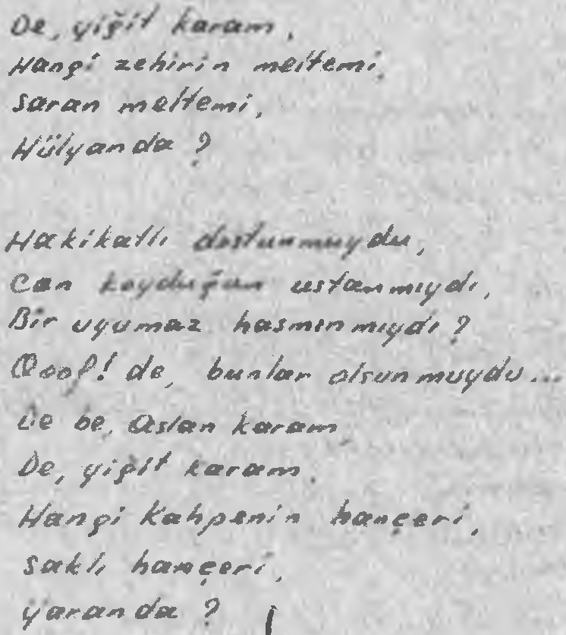 De, yiğit karam,
Hangi zehirin meltemi,
Saran meltemi,
Hülyanda ?
Hakikatlı dostunmuydu,
Can koyduğun ustanmıydı,
Bir uyumaz hasmınmıydı ?
Ooof! de, bunlar olsunmuydu...
De be, aslan karam
De, yiğit karam.
Hangi Kahpenin hançeri,
Saklı hançeri,
yaranda ?